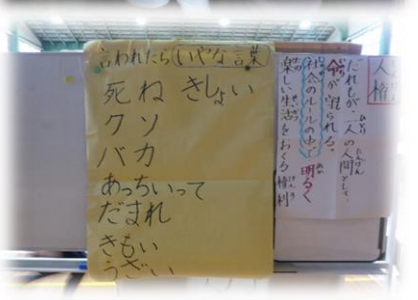 言われたらいやな言葉
死ね きしょい
クソ
バカ
あっちいって
だまれ
きもい
うざい
人権
だれもが、一人の人間として
命が守られる。
社会のルールの中で明るく
楽しい生活をおくる権利